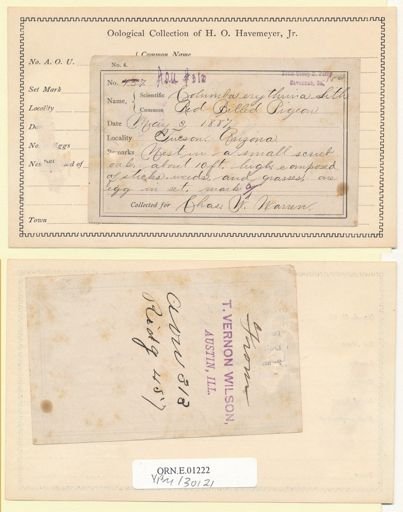 Oological Collection of H. O. Havemeyer, Jr.
Common Name
No. A. O. U.
Set Mark
Locality
Town
No. 4.
No. AOU 312
Name, Scientific Columba erythrina Lith
Common Red Billed Pigeon
Date May 3, 1887
Locality Tucson Arizona
Remarks Nest in a small scrub
oak, about 10 ft. high, composed
of sticks, weeds, and grasses, one
egg in set. mark
Collected for Chas. W. Warren.
From
T. VERNON WILSON,
AUSTIN, ILL.
aou 312
Ridg 457
ORN.E.01222
130121